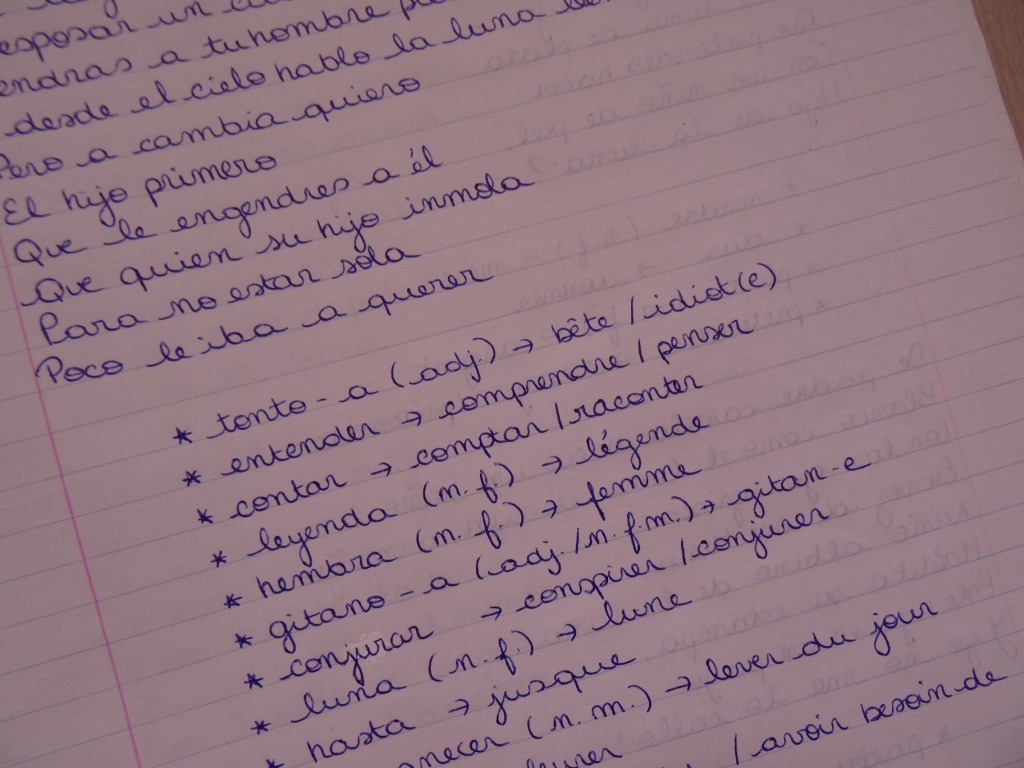 esposar un
endras a tu hombre
desde el cielo hablo la luna
Pero a cambia quiero
El hijo primero
Que le engendres a él
Que quien su hijo inmola
Para no estar sola
Poco le iba a querer
* tonto-a (adj) → bête / idiot(e)
* entender → comprendre / penser
* contar → comptar / raconter
* leyenda (n.f.) → légende
* hembra (n.f.) → femme
* gitano-a (adj./n.f.m.) → gitan-e
* conjurar → conspirer / conjurer
* luna (n.f.) → lune
* hasta → jusque
* necer (n.m.) → lever du jour
/ avoir besoin de